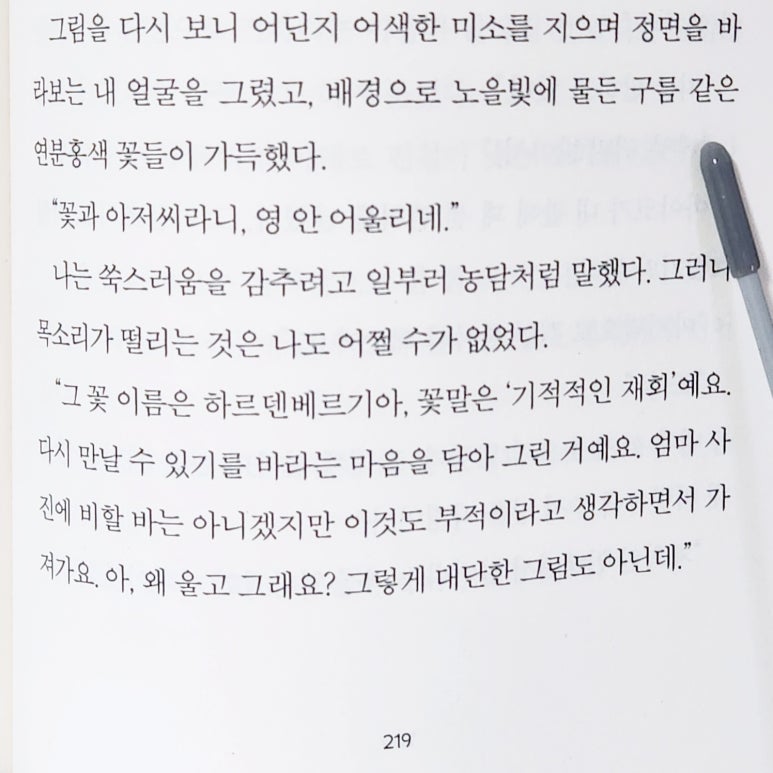 그림을 다시 보니 어딘지 어색한 미소를 지으며 정면을 바
라보는 내 얼굴을 그렸고, 배경으로 노을빛에 물든 구름 같은
연분홍색 꽃들이 가득했다.
“꽃과 아저씨라니, 영 안 어울리네.”
나는 쑥스러움을 감추려고 일부러 농담처럼 말했다. 그러나
목소리가 떨리는 것은 나도 어쩔 수가 없었다.
“그 꽃 이름은 하르덴베르기아, 꽃말은 ‘기적적인 재회’예요.
다시 만날 수 있기를 바라는 마음을 담아 그린 거예요. 엄마 사
진에 비할 바는 아니겠지만 이것도 부적이라고 생각하면서 가
져가요. 아, 왜 울고 그래요? 그렇게 대단한 그림도 아닌데.”
219